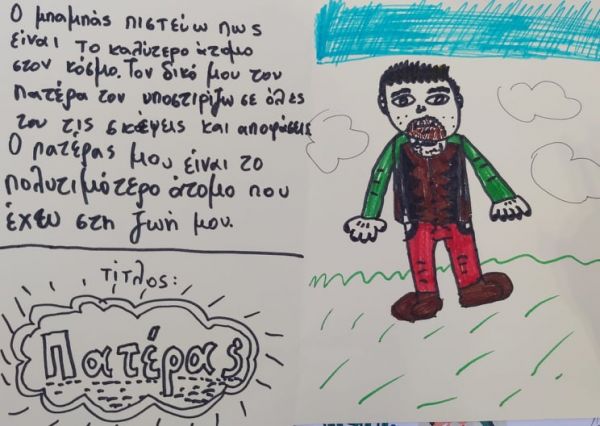 Ο μπαμπάς πιστεύω πως
είναι το καλύτερο άτομο
στον κόσμο. Τον δικό μου τον
πατέρα τον υποστιρίζω σε όλες
του τις σκέψεις και αποφάσεις
Ο πατέρας μου είναι το
πολυτιμότερο άτομο που
έχω στη ζωή μου.
τίτλος:
Πατέρας